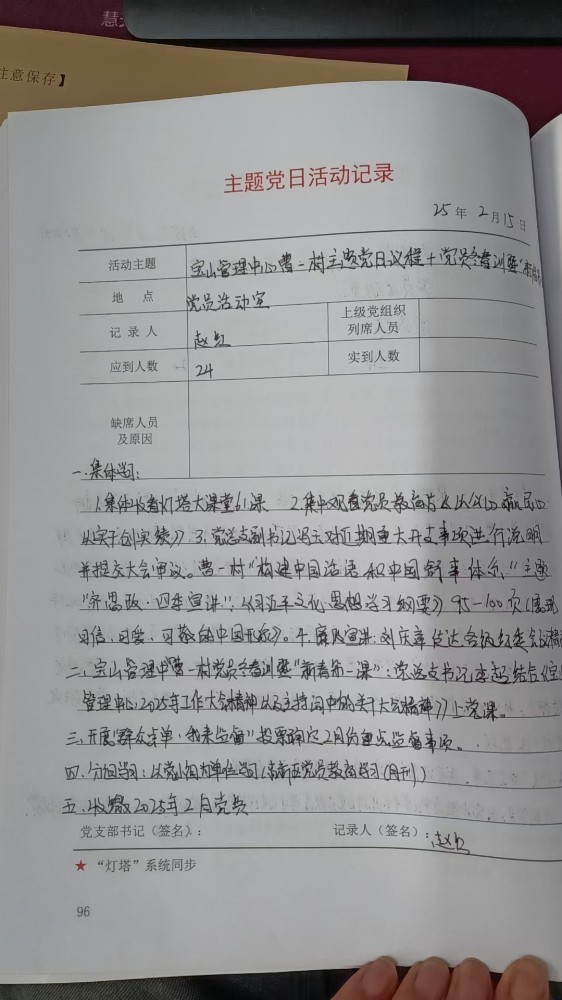 慧
注意保存】
主题党日活动记录
25 年 2 月 15 日
活动主题 宝山管理中心曹一村主题党日议程+党员冬春训暨"新
地 点 党员活动室
记录人 赵
上级党组织列席人员
应到人数 24 实到人数
缺席人员及原因
一.集体学习:
1.集体收看灯塔大课堂61课 2.集中观看党员教育片《从公心赢民心
以实干创实绩》3.党总支副书记 对近期重大开支事项进行说明
并提交大会审议。曹一村"构建中国话语和中国叙事体系"主题
"齐思政·四季宣讲":《习近平文化思想学习纲要》95-100页(展现
可信、可爱、可敬的中国形象)。4.廉政宣讲:刘庆章传达各级纪委会议精
二.宝山管理中曹一村党员冬春训暨"新春第一课":党总支书记 结合《宝
管理中心2025年工作大会精神以及主持词中的关于大会精神》上党课。
三.开展"群众点单·我来监督"投票确定2月份重点监督事项。
四.分组学习:以党小组为单位学习《高新区党员教育学习(月刊)
五.收缴2025年2月党费
党支部书记(签名): 记录人(签名):赵
★ "灯塔"系统同步
96